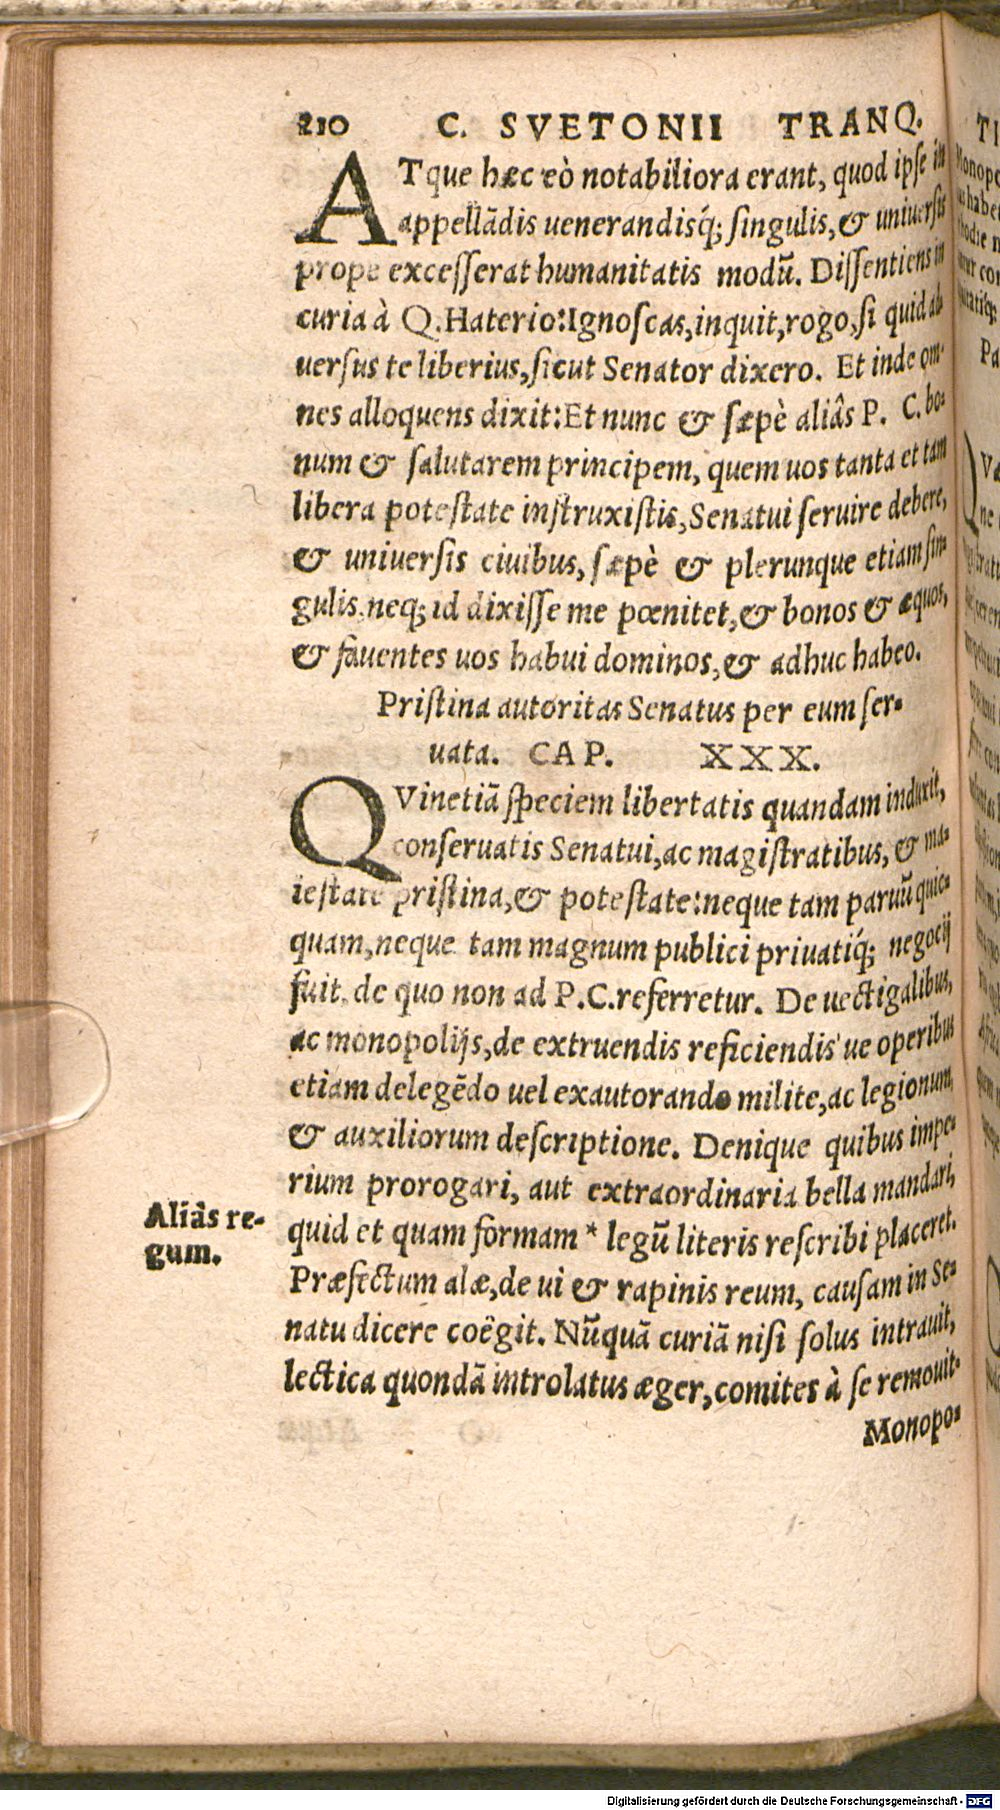 210 C. SVETONII TRANQ.
ATque hæc eò notabiliora erant, quod ipse in
appellādis uenerandisq́; singulis, & uniuersis
prope excesserat humanitatis modū. Dissentiens in
curia à Q. Haterio: Ignoscas, inquit, rogo, si quid ad
uersus te liberius, sicut Senator dixero. Et inde om-
nes alloquens dixit: Et nunc & sæpè aliâs P. C. bo-
num & salutarem principem, quem uos tanta et tam
libera potestate instruxistis, Senatui seruire debere,
& uniuersis ciuibus, sæpè & plerunque etiam sin-
gulis. neq; id dixisse me pœnitet, & bonos & æquos,
& fauentes uos habui dominos, & adhuc habeo.
Pristina autoritas Senatus per eum ser-
uata. CAP. XXX.
QVinetiā speciem libertatis quandam induxit,
conseruatis Senatui, ac magistratibus, & ma-
iestate pristina, & potestate: neque tam paruū quic-
quam, neque tam magnum publici priuatiq́; negocij
fuit, de quo non ad P.C. referretur. De uectigalibus,
ac monopolijs, de extruendis reficiendis'ue operibus
etiam delegēdo uel exautorando milite, ac legionum,
& auxiliorum descriptione. Denique quibus impe-
rium prorogari, aut extraordinaria bella mandari,
Aliâs re-
gum.
quid et quam formam * legū literis rescribi placeret.
Præfectum alæ, de ui & rapinis reum, causam in Se-
natu dicere coëgit. Nūquā curiā nisi solus intrauit,
lectica quondā introlatus æger, comites à se remouit.
Monopo-
Digitalisierung gefördert durch die Deutsche Forschungsgemeinschaft - DFG